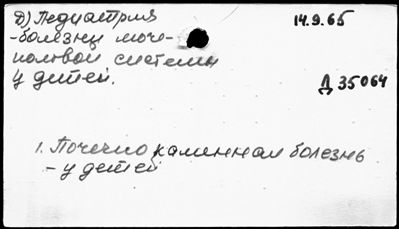 Д) Педиатрия 14.9.65
-болезни моче-
половой системы
у детей.
Д 35064
1. Почечно каменная болезнь
- у детей